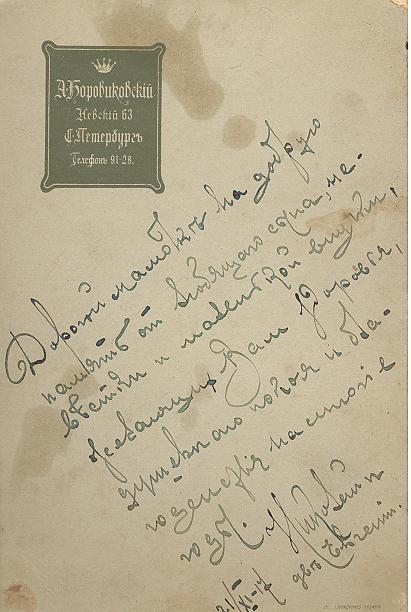 А. Боровиковскій
Невскій 63
С.-Петербургъ
Телефонъ 91-28.
Дорогой мамочкѣ на добрую
память отъ любящаго сына, не-
вѣстки и маленькой внучки,
желающихъ Вамъ здоровья,
душевнаго покоя и бла-
годенствія на многіе
годы.